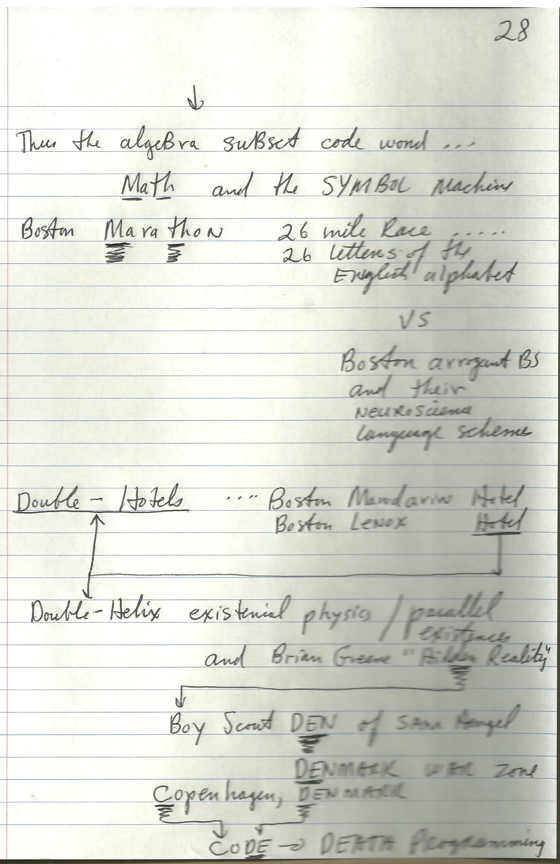 28
Thus the algeBra suBset code word ...
Math and the SYMBOL Machine
Boston Marathon 26 mile Race .....
26 letters of the
English alphabet
VS
Boston arrogant BS
and their
neurosciene
language scheme
Double - Hotels .... Boston Mandarin Hotel
Boston Lenox Hotel
Double-Helix existenial physics / parallel
existences
and Brian Greene "Hidden Reality"
Boy Scout DEN of San Angel
DENMARK WAR Zone
Copenhagen, DENMARK
CODE → DEATH Programming